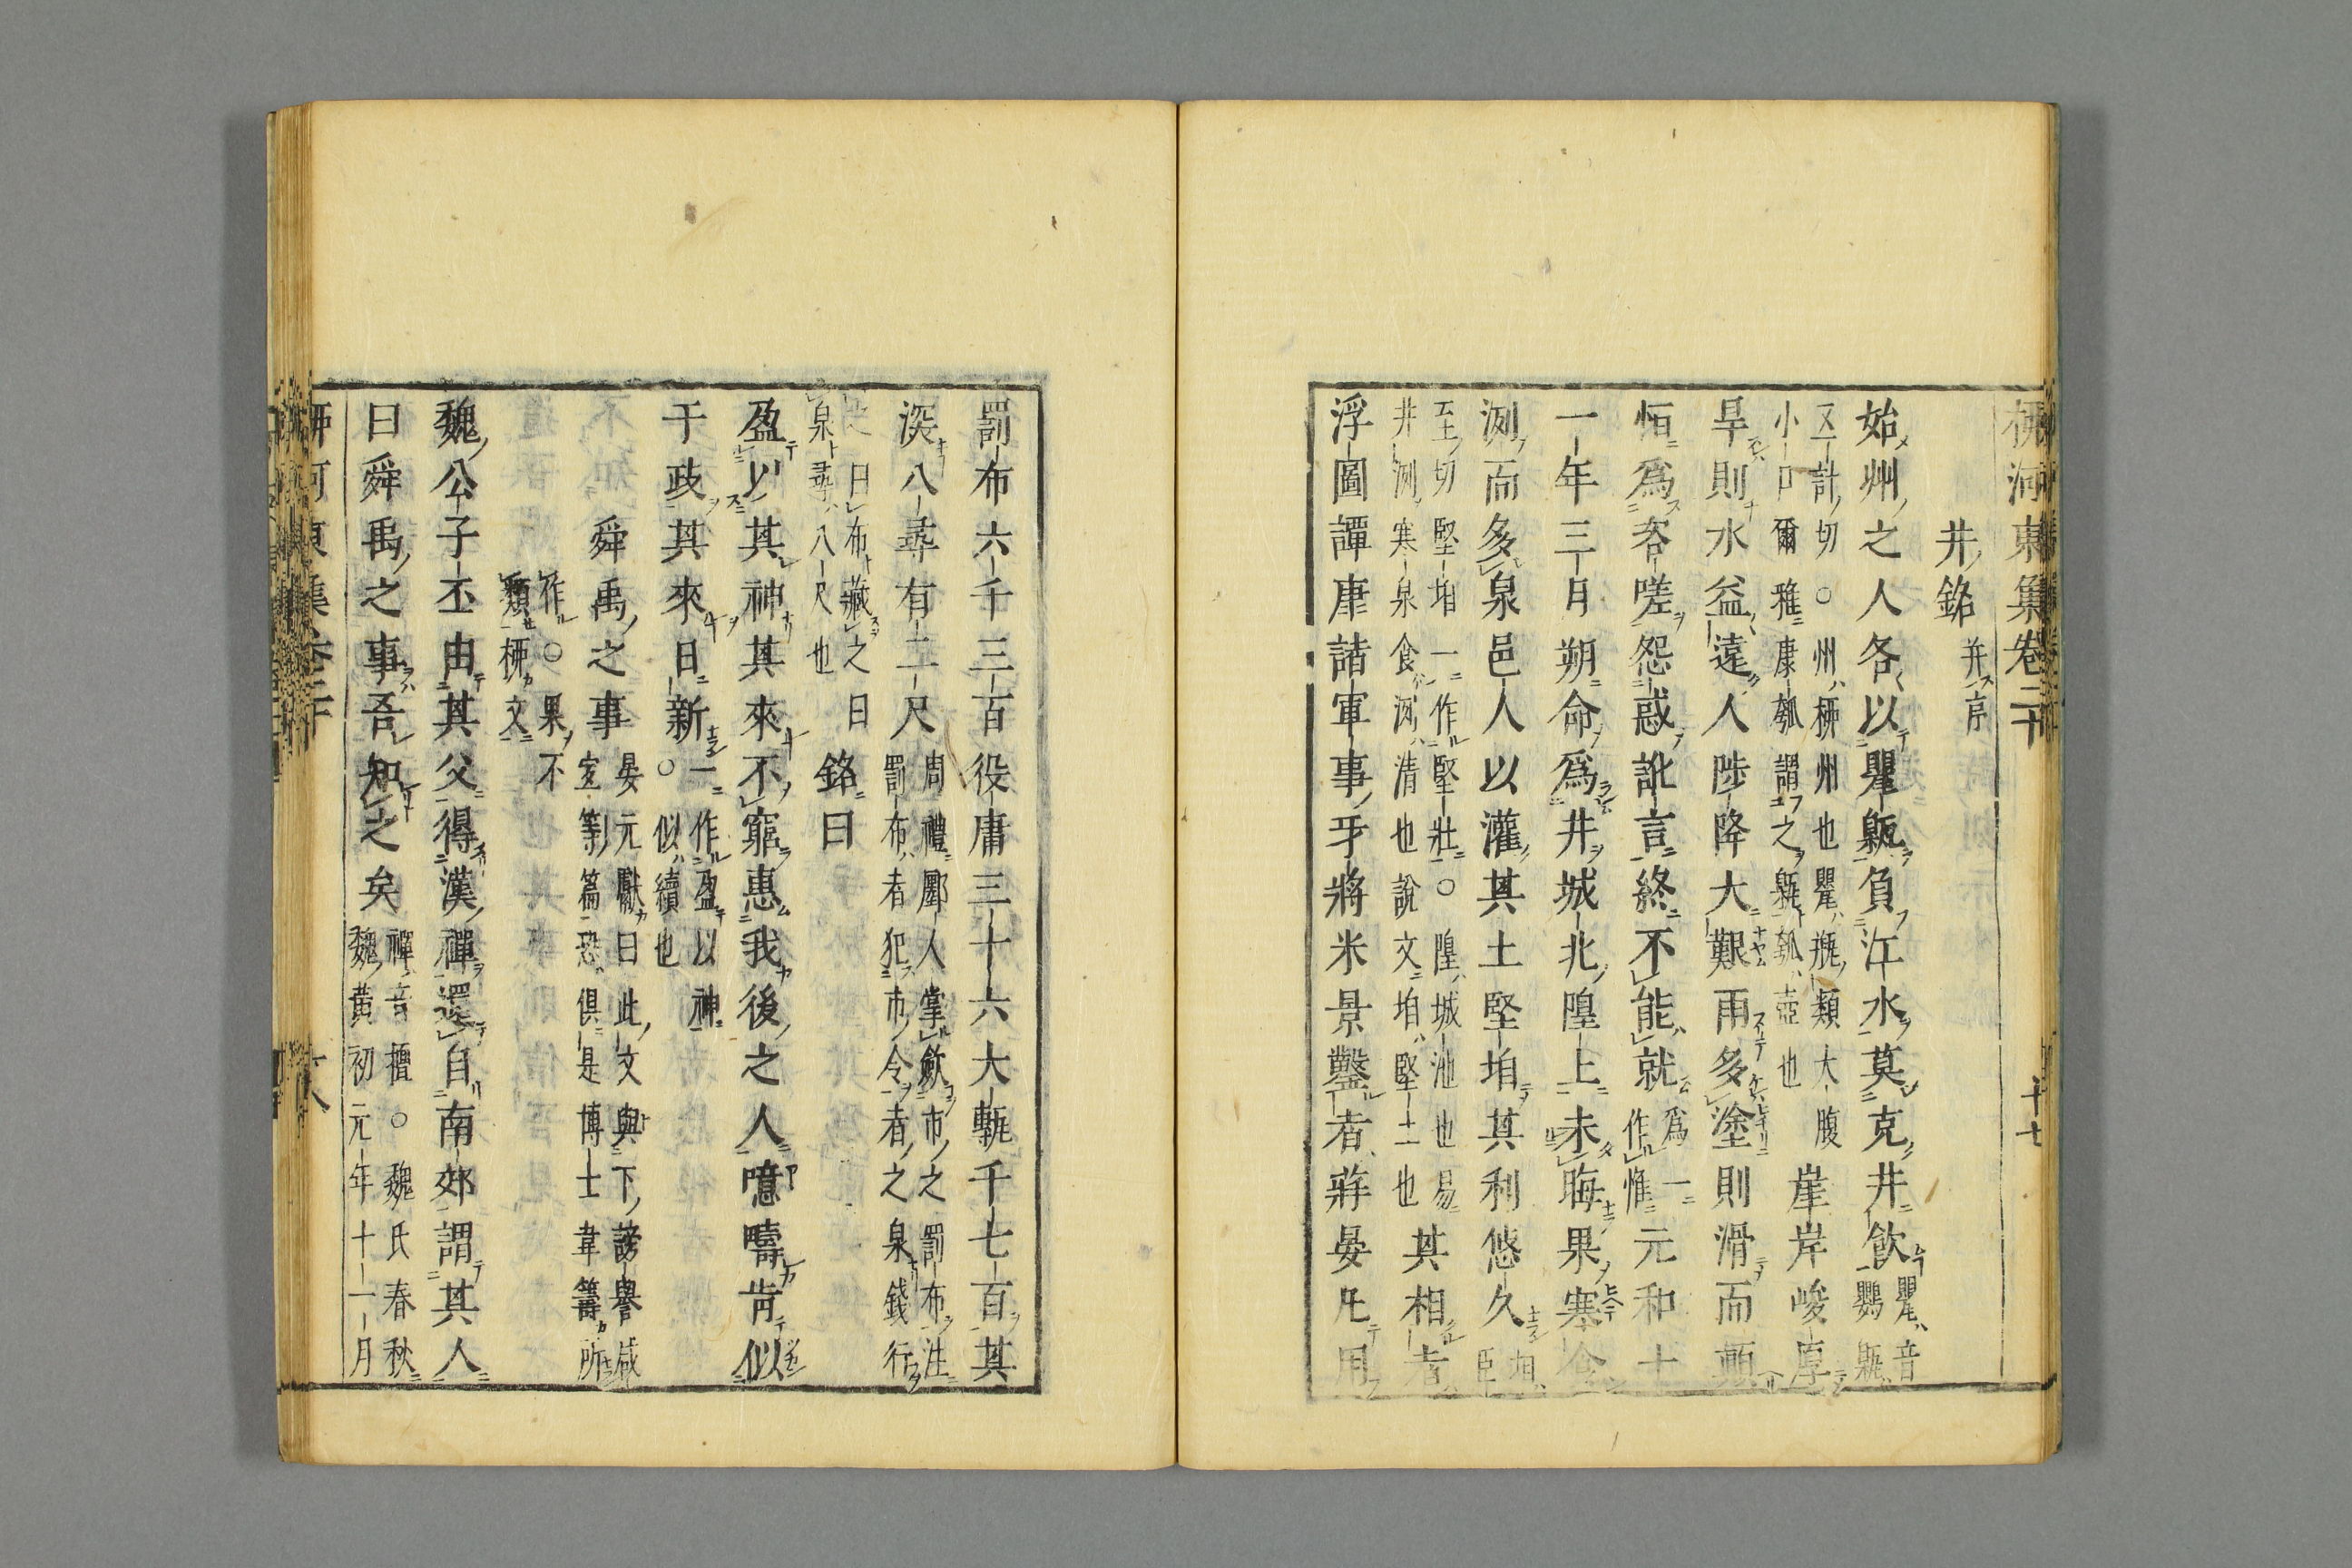 柳河東集卷二十　十七
井銘 并序
始州之人各以甖甈負江水莫克井飲 甖音鸚甈
又計切○州柳州也甖瓶類大腹小口爾雅康瓠謂之甈瓠壺也 崖岸峻厚
旱則水益遠人陟降大艱雨多塗則滑而顛
恒爲咨嗟怨惑訛言終不能就 爲一作惟 元和十
一年三月朔命爲井城北隍上未晦果寒食
洌而多泉邑人以灌其土堅垍其利悠久 垍臣
至切堅垍一作堅壯○隍城池也易井洌寒泉食洌清也說文垍堅土也 其相者
浮圖譚康諸軍事牙將米景鑿者蔣晏凡用
罰布六千三百役庸三十六大甎千七百其
深八尋有二尺 周禮鄽人掌斂市之罰布注罰布者犯市令者之泉錢行
之曰布藏之曰泉尋八尺也 銘曰
盈以其神其來不窮惠我後之人噫疇肯似
于政其來日新 一作盈以神○似續也
舜禹之事 晏元獻曰此文與下謗譽咸宜等篇恐俱是博士韋籌所
作○果不類柳文
魏公子丕由其父得漢禪還自南郊謂其人
曰舜禹之事吾知之矣 禪音擅○魏氏春秋魏黃初元年十一月
柳河東集卷二十　十八